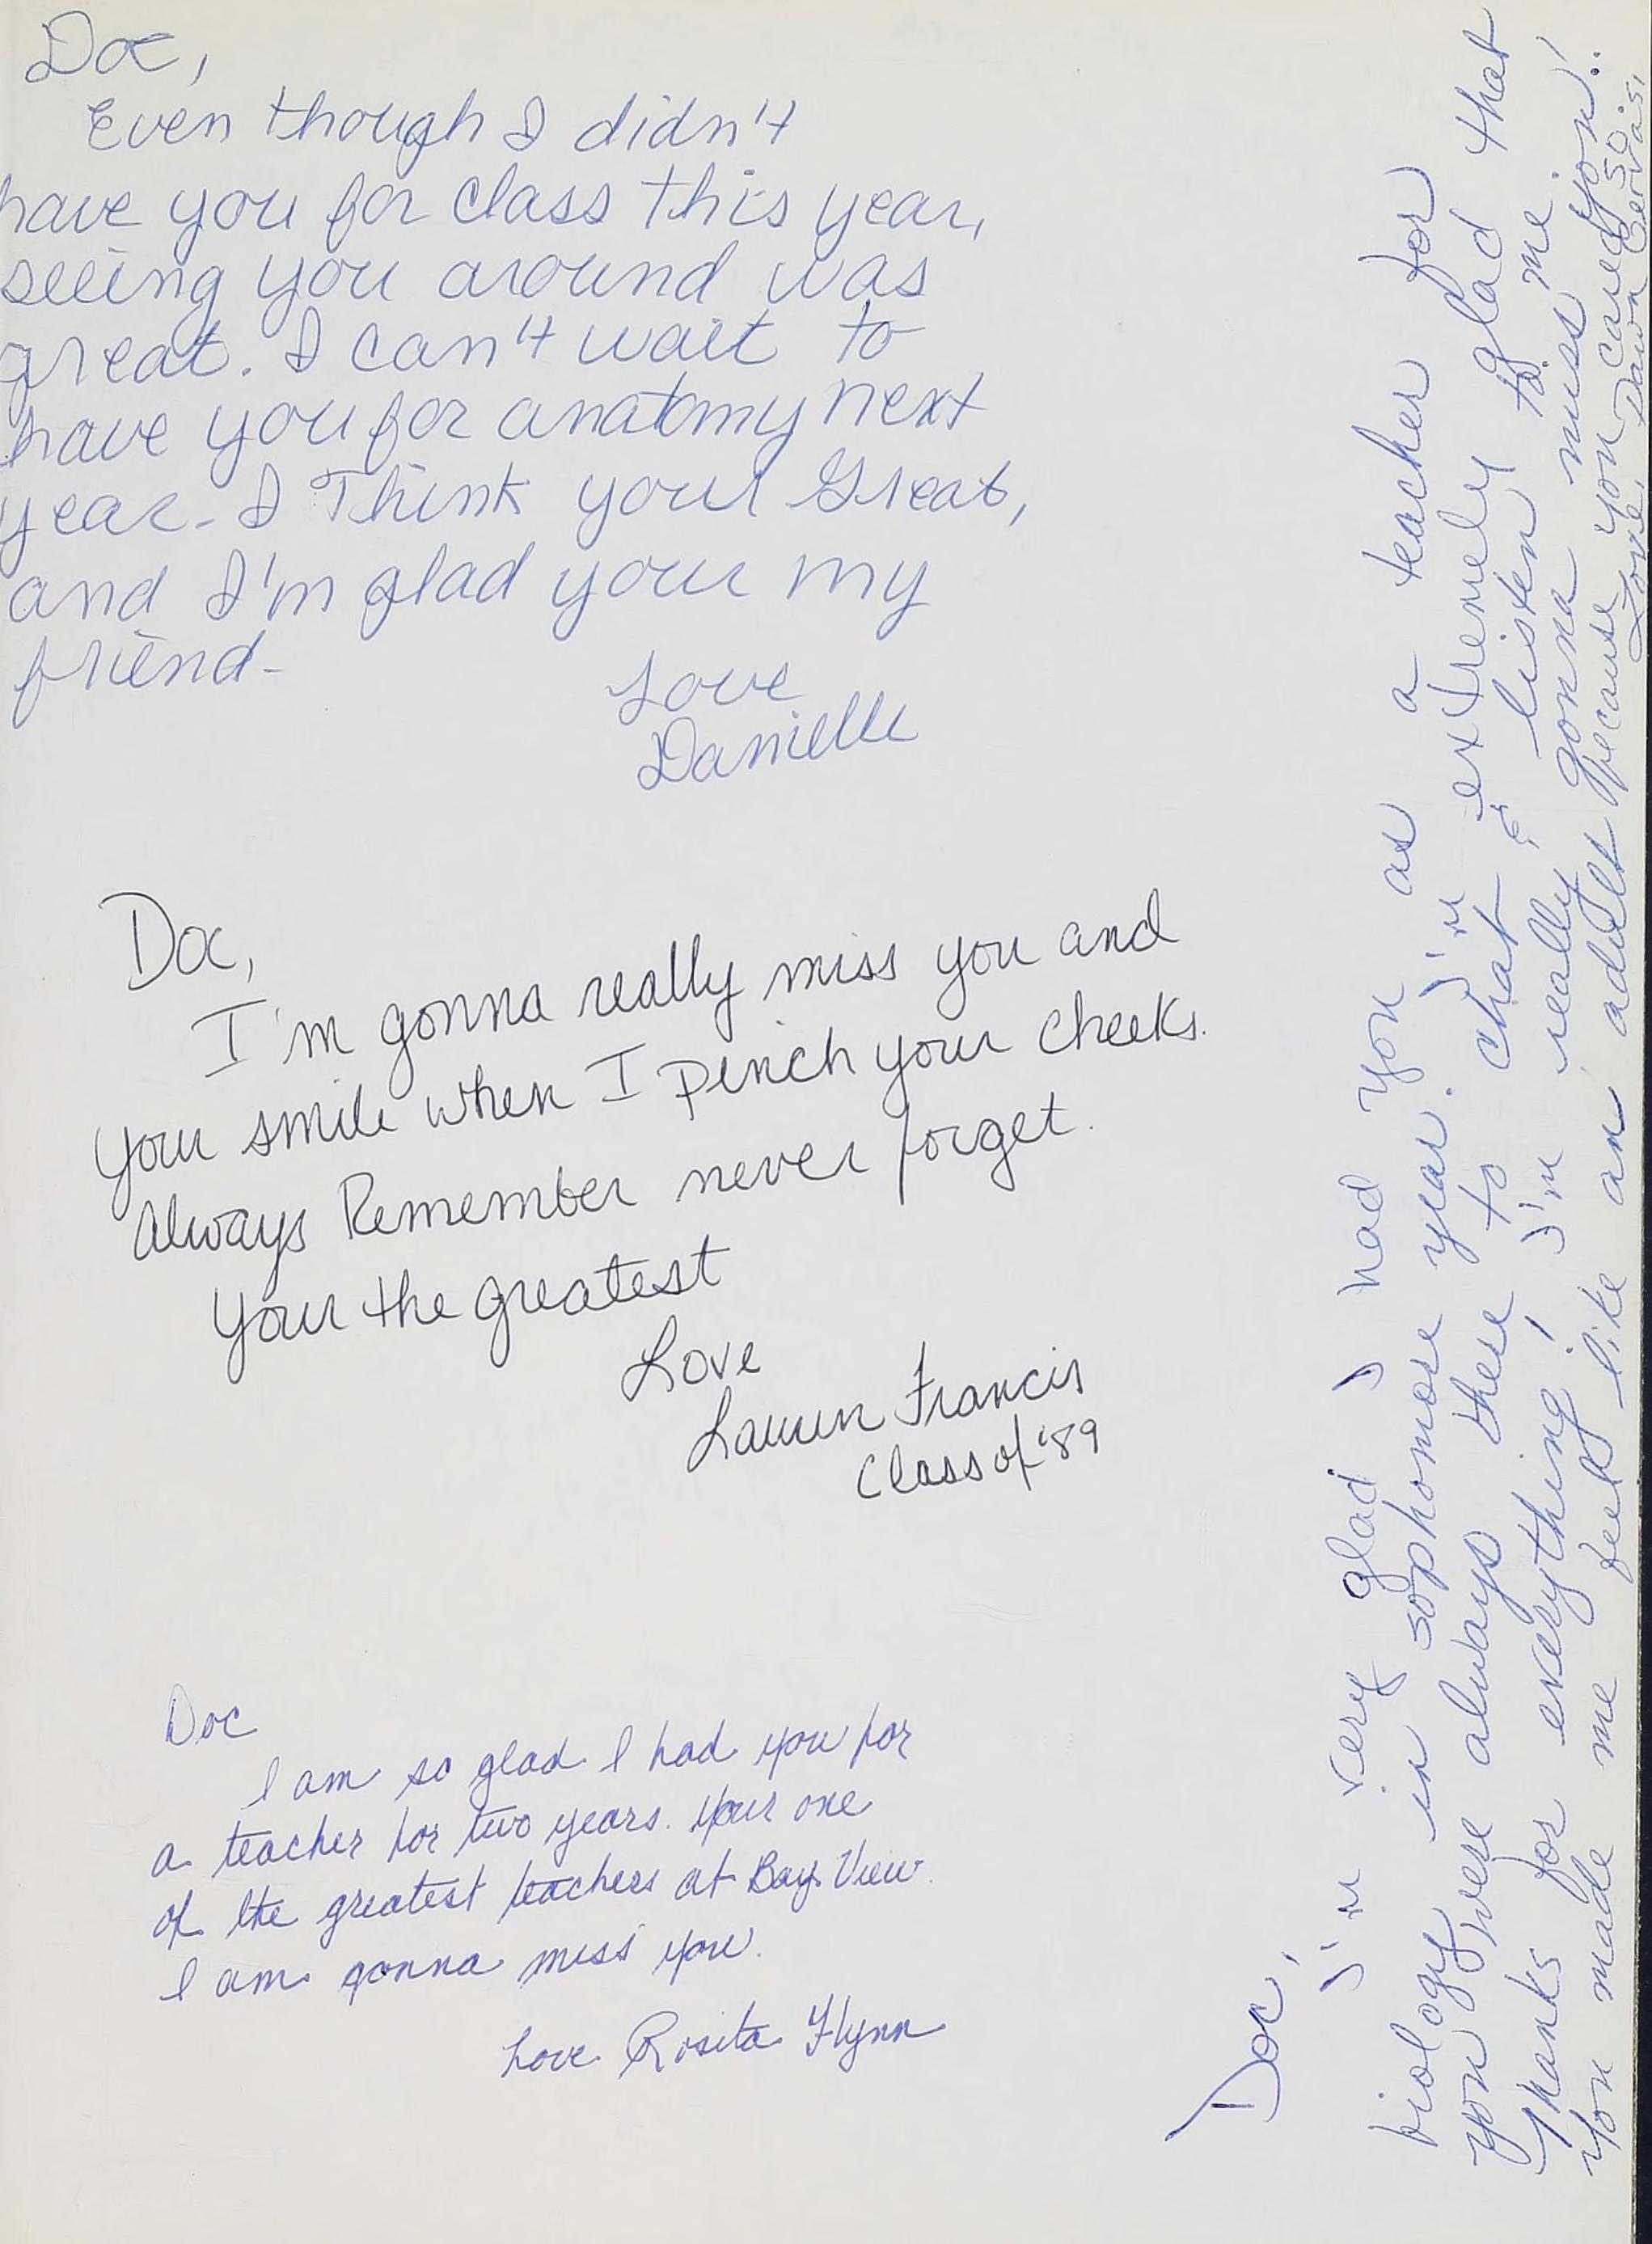 Doc,
Even though I didn't
have you for class this year,
seeing you around was
great. I can't wait to
have you for anatomy next
year. I Think your Great,
and I'm glad your my
friend-
Love
Danielle
Doc,
I'm gonna really miss you and
your smile when I pinch your cheeks.
Always Remember never forget.
Your the greatest
Love
Lauren Francis
Class of '89
Doc
I am so glad I had you for
a teacher for two years. Your one
of the greatest teachers at Bay View.
I am gonna miss you.
Love Rosita Flynn
Doc,
I'm very glad I had you as a teacher for
biology in sophomore year. I'm extremely glad that
you were always there to chat & listen to me.
Thanks for everything! I'm really gonna miss you!
You made me feel like an adult because you cared so..
Love, Dawn Gervais,